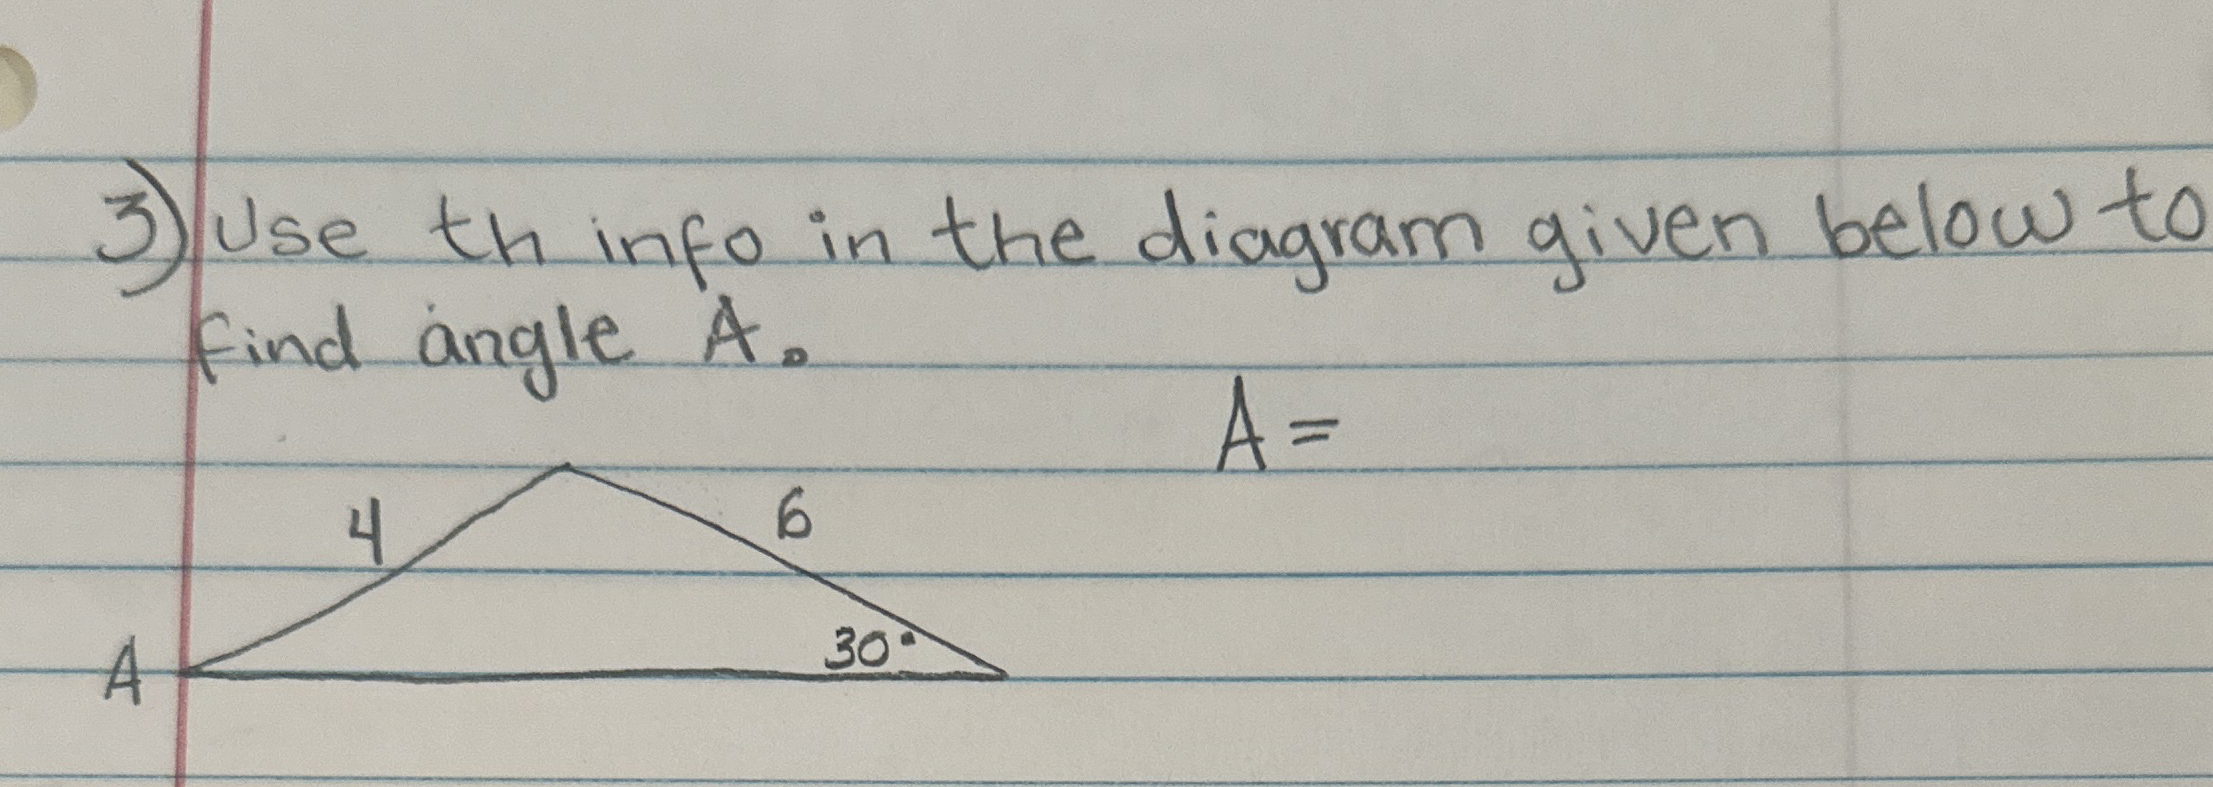 3) Use th info in the diagram given below to
find angle A.
A =
4
6
30°
A